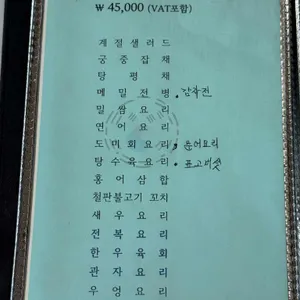 ₩ 45,000 (VAT포함)
계절샐러드
궁중잡채
탕평채
메밀전병, 감자전
밀쌈요리
연어요리
도미회요리, 문어요리
탕수육요리, 표고버섯
홍어삼합
철판불고기 꼬치
새우요리
전복요리
한우육회
관자요리
우엉요리